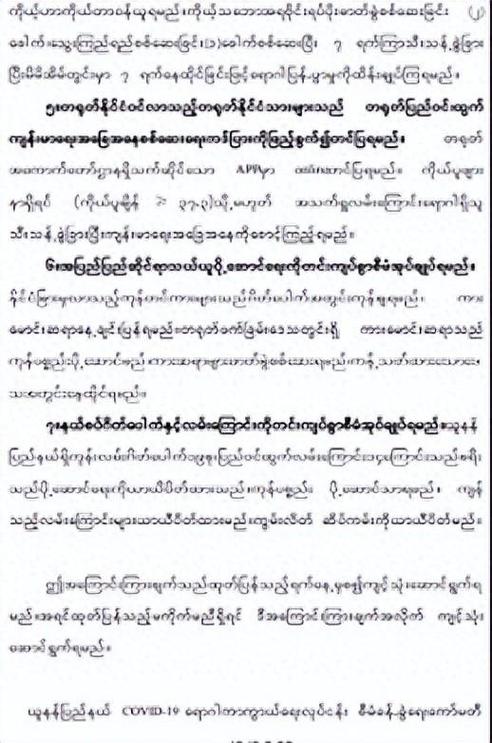 ကိုယ့်ဟာကိုယ်တာဝန်ယူရမည်၊ကိုယ့်သဘောအရပိုင်းရပ်ပိုးဓာတ်ခွဲစစ်ဆေးခြင်း (၂)
ခေါက်၊သွေးကြည်ရည်စစ်ဆေးခြင်း(၁)ခေါက်စစ်ဆေးပြီး ၇ ရက်ကြာသီးသန့်ခွဲခြား
ပြီးမိမိအိမ်တွင်းမှာ ၇ ရက်နေထိုင်ခြင်းဖြင့်ရောဂါပြန့်ပွားမှုကိုထိန်းချုပ်ကြရမည်။
၅။တရုတ်နိုင်ငံဝင်လာသည့်တရုတ်နိုင်ငံသားများသည် တရုတ်ပြည်ဝင်ထွက်
ကျန်းမာရေးအခြေအနေစစ်ဆေးရေးကဒ်ပြားကိုဖြည့်စွက်၍တင်ပြရမည်။ တရုတ်
အကောက်တော်ဌာနရှိသက်ဆိုင်သော APPမှာ တင်ပြရမည်။ ကိုယ်ပူဖျား
နာရှိရင် (ကိုယ်ပူချိန် ≥ ၃၇.၃)သို့မဟုတ် အသက်ရှူလမ်းကြောင်းရောဂါရှိသူ
သီးသန့်ခွဲခြားပြီးကျန်းမာရေးအခြေအနေကိုစောင့်ကြည့်ရမည်။
၆။အပြည်ပြည်ဆိုင်ရာသယ်ယူပို့ဆောင်ရေးကိုတင်းကျပ်စွာစီမံအုပ်ချုပ်ရမည်။
နိုင်ငံခြားမှလာသည့်ကုန်တင်ကားများသည်ဂိတ်ပေါက်အတွင်းကုန်ချရမည်၊ ကား
မောင်းဆရာနေ့ချင်းပြန်ရမည်။တရုတ်ဖက်ခြမ်းဒေသတွင်းရှိ ကားမောင်းဆရာသည်
ကုန်ပစ္စည်းပို့ဆောင်မည်ကားဆရာများဓာတ်ခွဲစစ်ဆေးရမည်၊ကန့်သတ်ထားသော
နေထိုင်ရမည်။
၇။နယ်စပ်ဂိတ်ပေါက်နှင့်လမ်းကြောင်းကိုတင်းကျပ်စွာစီမံအုပ်ချုပ်ရမည်။ယူနန်
ပြည်နယ်ရှိကုန်းလမ်းဂိတ်ပေါက်၁၉ခု၊ပြည်ဝင်ထွက်လမ်းကြောင်း၁၄ကြောင်းသည်ခရီး
သည်ပို့ဆောင်ရေးကိုယာယီပိတ်ထားသည်၊ကုန်ပစ္စည်း ပို့ဆောင်သာရမည်၊ ကျန်
သည့်လမ်းကြောင်းများယာယီပိတ်ထားမည်။ကျွမ်းလိတ် ဆိပ်ကမ်းကိုယာယီပိတ်မည်။
ဤအကြောင်းကြားချက်သည်ထုတ်ပြန်သည့်ရက်နေ့မှစ၍ကျင့်သုံးဆောင်ရွက်ရ
မည်။အရင်ထုတ်ပြန်သည့်မကိုက်မညီရှိရင် ဒီအကြောင်းကြားချက်အလိုက် ကျင့်သုံး
ဆောင်ရွက်ရမည်။
ယူနန်ပြည်နယ် COVID-19 ရောဂါကာကွယ်ရေးလုပ်ငန်း စီမံခန့်ခွဲရေးကော်မတီ